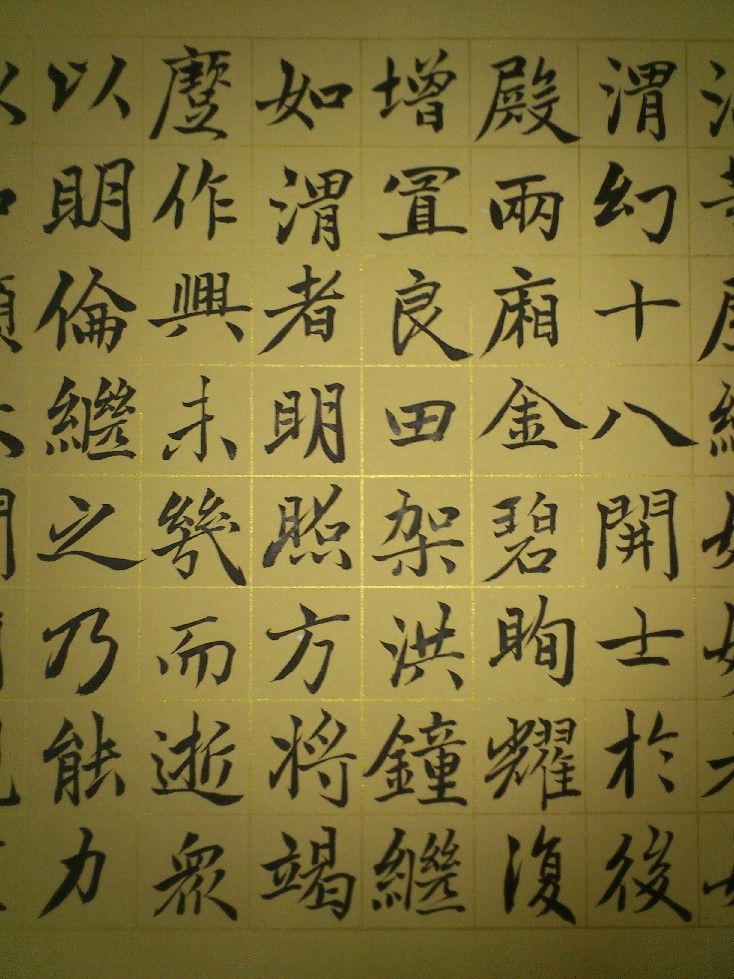 渭幻十八開士於後
殿兩廂金碧眴耀復
增置良田架洪鐘繼
如渭者明照方將竭
作興未幾而逝眾
以明倫繼之乃能力